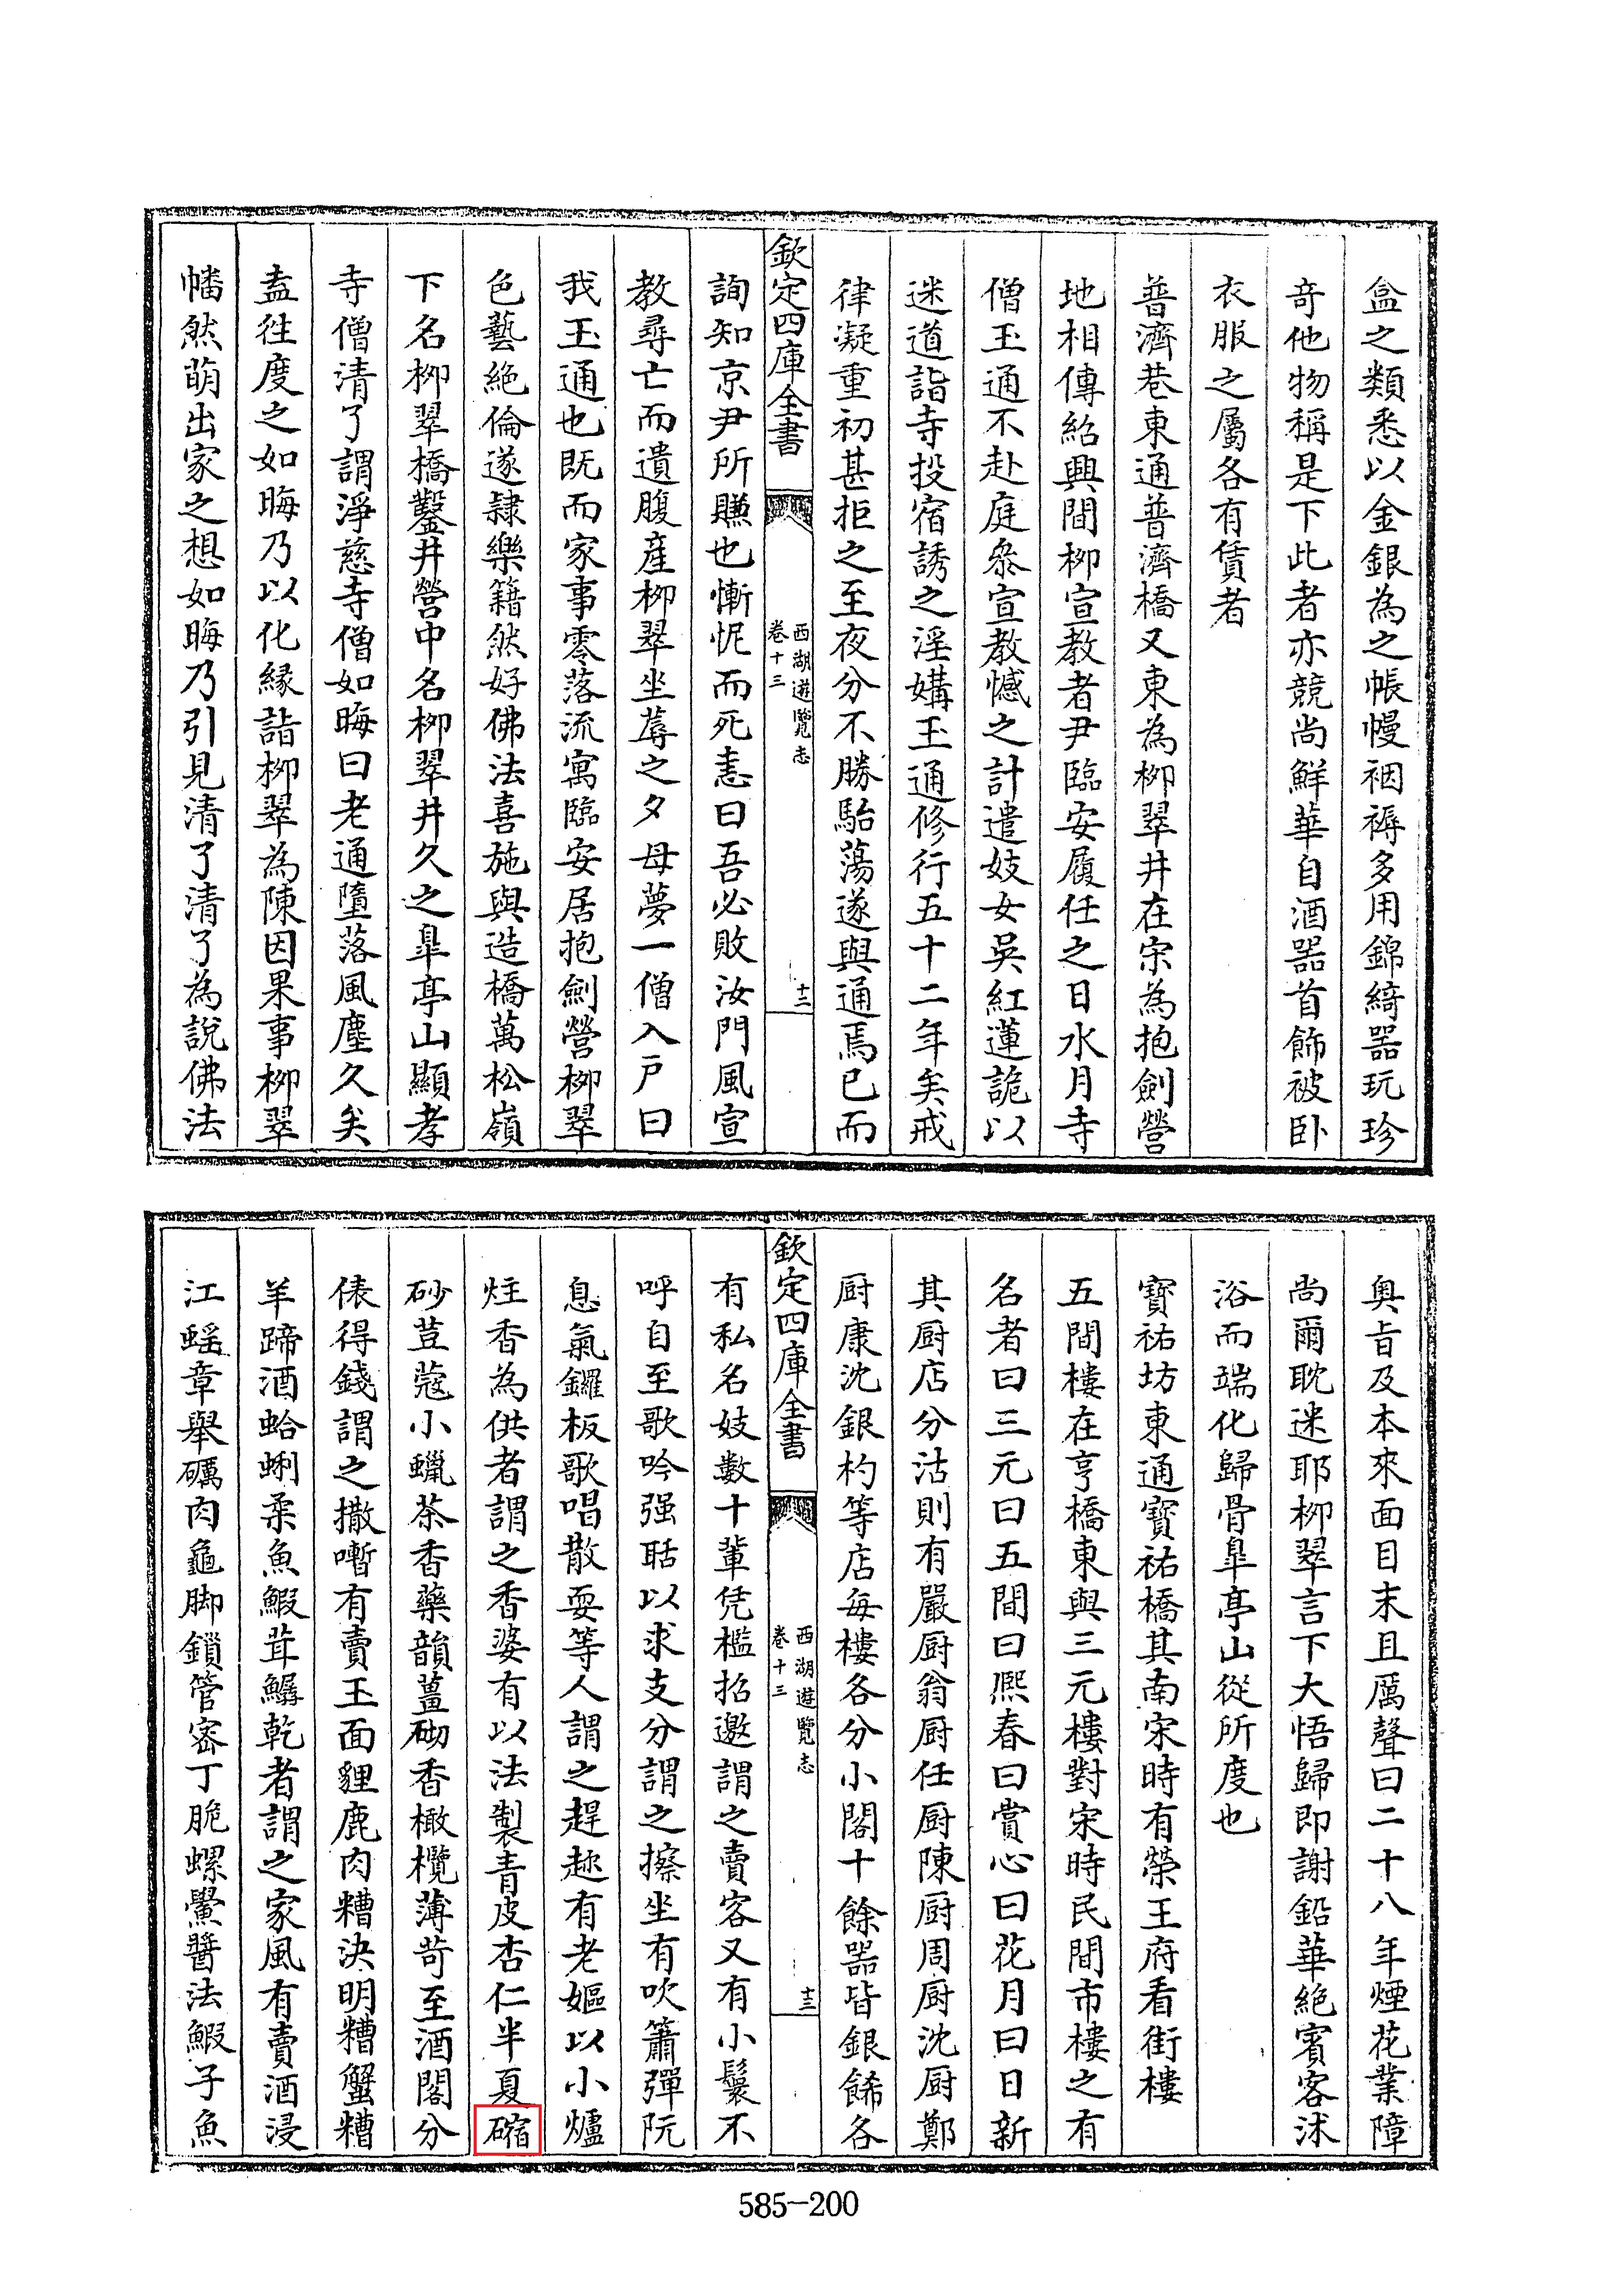 盒之類悉以金銀為之帳幔裀褥多用錦綺器玩珍
奇他物稱是下此者亦競尚鮮華自酒器首飾被卧
衣服之屬各有賃者
普濟巷東通普濟橋又東為柳翠井在宋為抱劍營
地相傳紹興間柳宣教者尹臨安履任之日水月寺
僧玉通不赴庭叅宣教憾之計遣妓女吳紅蓮詭以
迷道詣寺投宿誘之淫媾玉通修行五十二年矣戒
律凝重初甚拒之至夜分不勝駘蕩遂與通焉已而
欽定四庫全書
西湖遊覽志
卷十三
十二
詢知京尹所賺也慚怩而死恚曰吾必敗汝門風宣
教尋亡而遺腹産柳翠坐蓐之夕母夢一僧入戸曰
我玉通也既而家事零落流寓臨安居抱劍營柳翠
色藝絶倫遂隷樂籍然好佛法喜施與造橋萬松嶺
下名柳翠橋鑿井營中名柳翠井久之臯亭山顯孝
寺僧清了謂淨慈寺僧如晦曰老通墮落風塵久矣
盍徃度之如晦乃以化縁詣柳翠為陳因果事柳翠
幡然萌出家之想如晦乃引見清了清了為説佛法
奥㫖及本來面目末且厲聲曰二十八年煙花業障
尚爾耽迷耶柳翠言下大悟歸即謝鉛華絶賓客沐
浴而端化歸骨臯亭山從所度也
寶祐坊東通寶祐橋其南宋時有榮王府看街樓
五間樓在亨橋東與三元樓對宋時民間市樓之有
名者曰三元曰五間曰熈春曰賞心曰花月曰日新
其厨店分沽則有嚴厨翁厨任厨陳厨周厨沈厨鄭
厨康沈銀杓等店毎樓各分小閣十餘器皆銀餙各
欽定四庫全書
西湖遊覽志
卷十三
十三
有私名妓數十輩凭檻招邀謂之賣客又有小鬟不
呼自至歌吟强聒以求支分謂之擦坐有吹簫彈阮
息氣鑼板歌唱散耍等人謂之趕趂有老嫗以小爐
炷香為供者謂之香婆有以法製青皮杏仁半夏
砂荳蔻小蠟茶香藥韻薑砌香橄欖薄苛至酒閣分
俵得錢謂之撒嚽有賣玉面貍鹿肉糟決明糟蟹糟
羊蹄酒蛤蜊柔魚鰕茸鱘乾者謂之家風有賣酒浸
江蜯章舉礪肉龜脚鎖管宻丁脆螺鱟醬法鰕子魚
585-200